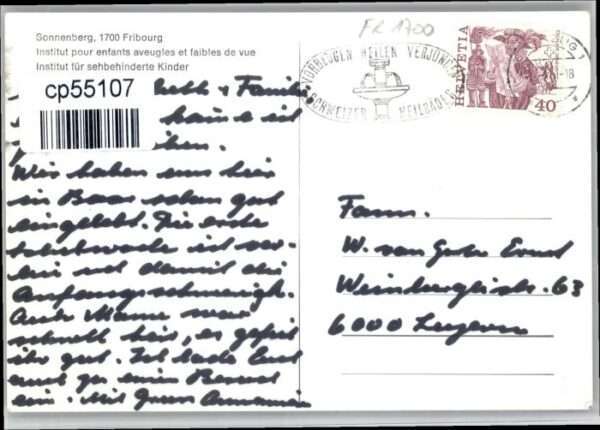 Sonnenberg, 1700 Fribourg
Institut pour enfants aveugles et faibles de vue
Institut für sehbehinderte Kinder
cp55107
FR 1700
VORBEUGEN HEILEN VERJÜNGEN
SCHWEIZER HEILBÄDER
HELVETIA
40
-18
1
& Familie
ist
Wir haben uns hier
in Baar schon gut
eingelebt. Die erste
Schulwoche ist vor-
bei und damit die
Anfangsschwierigk.
Auch Mame war
schnell hier, es gefiel
ihr gut. Ich lade Euch
auch zu einem Besuch
ein. Mit Gruss Annamarie
Fam.
W. von Ernst
Weinberglistr. 63
6000 Luzern